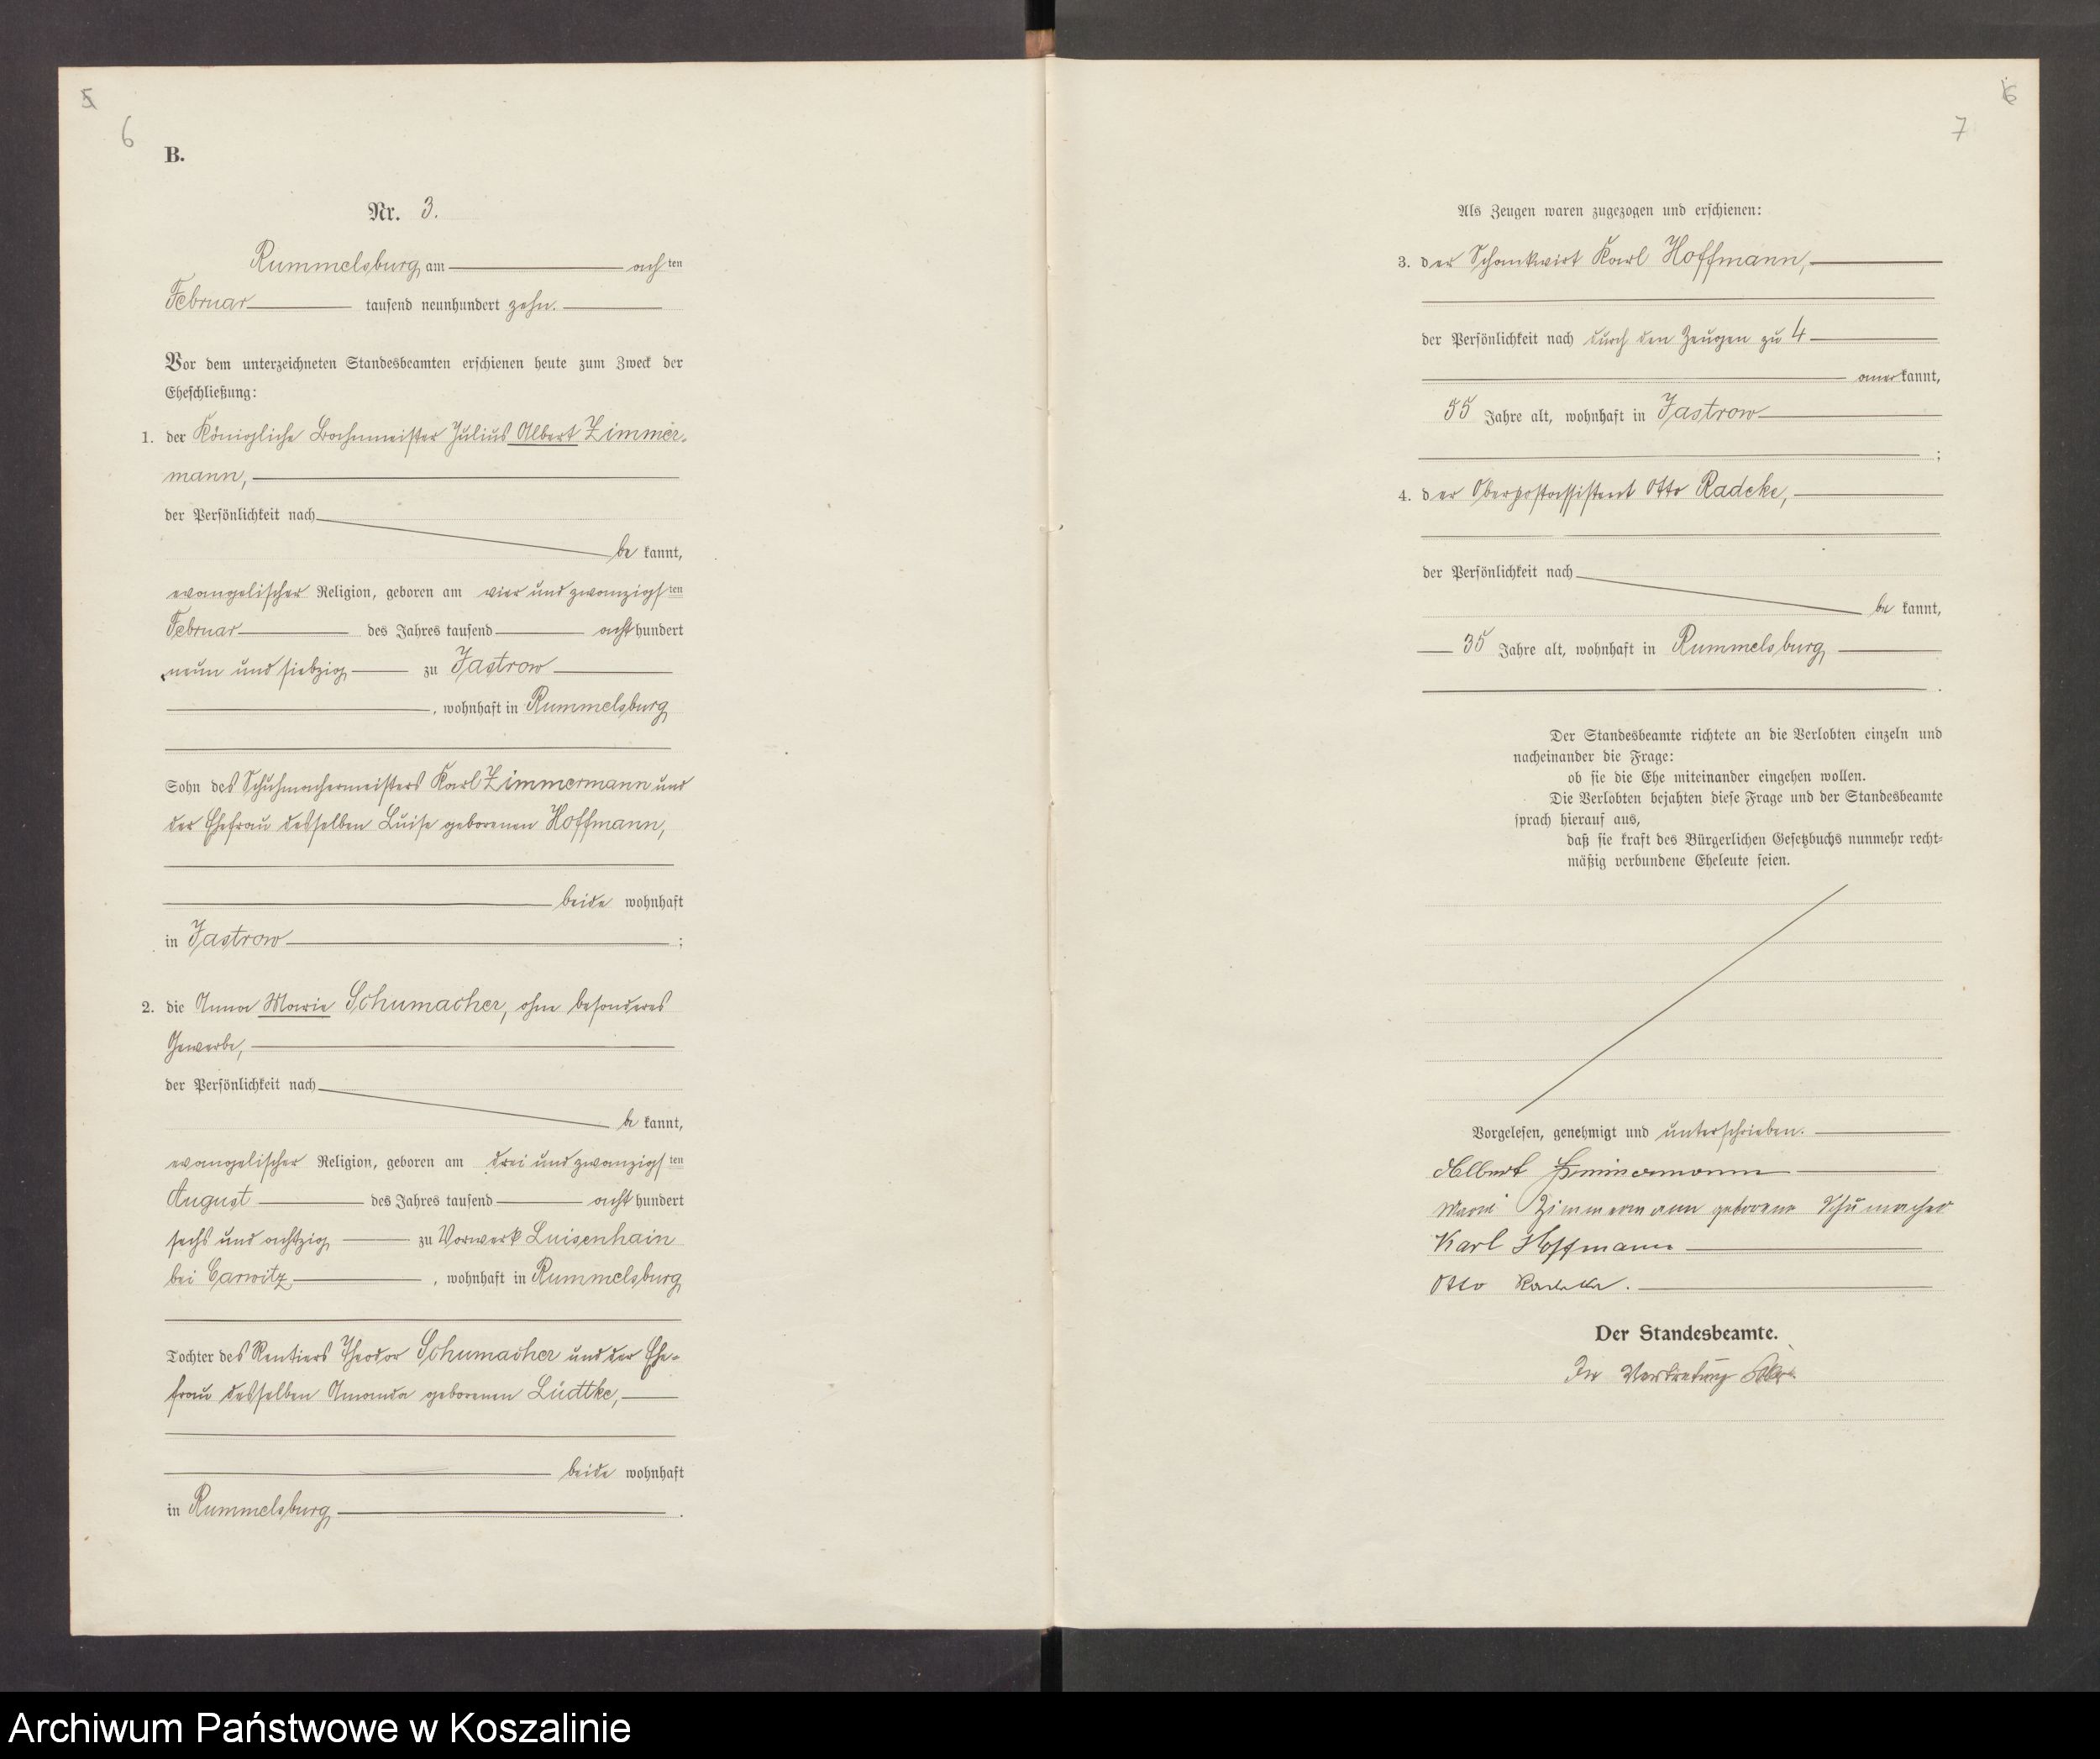 5
6
B.
Nr. 3.
Rummelsburg, am achten
Februar tausend neunhundert zehn.
Vor dem unterzeichneten Standesbeamten erschienen heute zum Zweck der
Eheschließung:
1. der Königliche Bahnmeister Julius Albert Zimmer-
mann,
der Persönlichkeit nach
be kannt,
evangelischer Religion, geboren am vier und zwanzigsten
Februar des Jahres tausend acht hundert
neun und siebzig zu Jastrow
, wohnhaft in Rummelsburg
Sohn des Schuhmachermeisters Karl Zimmermann und
der Ehefrau desselben Luise geborenen Hoffmann,
beide wohnhaft
in Jastrow ;
2. die Anna Marie Schumacher, ohne besonderes
Gewerbe,
der Persönlichkeit nach
be kannt,
evangelischer Religion, geboren am drei und zwanzigsten
August des Jahres tausend acht hundert
sechs und achtzig zu Vorwerk Luisenhain
bei Carwitz , wohnhaft in Rummelsburg
Tochter des Rentiers Theodor Schumacher und der Ehe-
frau desselben Amanda geborenen Lüdtke,
beide wohnhaft
in Rummelsburg .
6
7
Als Zeugen waren zugezogen und erschienen:
3. der Schankwirt Karl Hoffmann,
der Persönlichkeit nach durch den Zeugen zu 4
anerkannt,
55 Jahre alt, wohnhaft in Jastrow
;
4. der Oberpostassistent Otto Radcke,
der Persönlichkeit nach
be kannt,
35 Jahre alt, wohnhaft in Rummelsburg
.
Der Standesbeamte richtete an die Verlobten einzeln und
nacheinander die Frage:
ob sie die Ehe miteinander eingehen wollen.
Die Verlobten bejahten diese Frage und der Standesbeamte
sprach hierauf aus,
daß sie kraft des Bürgerlichen Gesetzbuchs nunmehr recht-
mäßig verbundene Eheleute seien.
Vorgelesen, genehmigt und unterschrieben.
Albert Zimmermann
Marie Zimmermann geborene Schumacher
Karl Hoffmann
Otto Radcke.
Der Standesbeamte.
In Vertretung
Archiwum Państwowe w Koszalinie